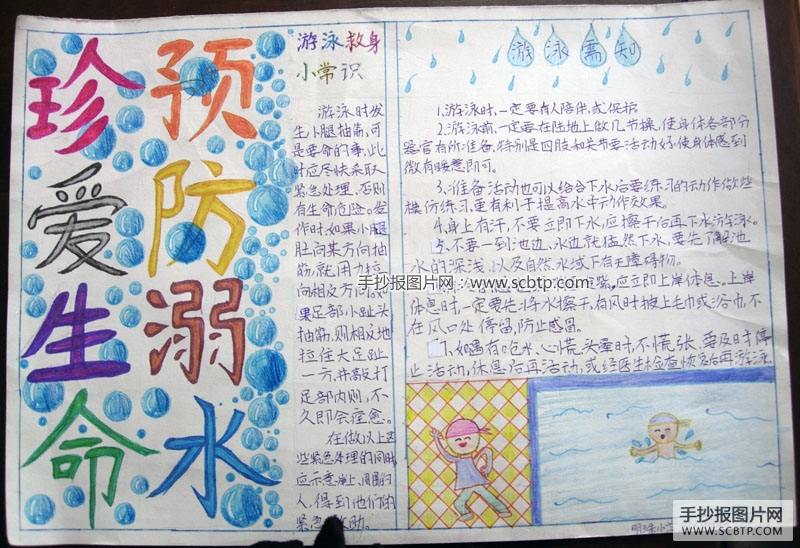 珍爱生命
预防溺水
游泳救身
小常识
游泳时发
生小腿抽筋,可
是要命的事,此
时应尽快采取
紧急处理,否则
有生命危险。发
作时,如果小腿
肚向某方向抽
筋,就用力拉
向相反方向。如
果足部小趾头
抽筋,则相反地
拉住大足趾
一方,并敲打
足部内则,不
久即会痊愈。
在做以上这
些紧急处理的同时,
应示意岸上、周围的
人,得到他们的
紧急救助。
游泳需知
1.游泳时,一定要有人陪伴,或保护
2.游泳前,一定要在陆地上做几节操,使身体各部分
器官有所准备,特别是四肢和关节要活动好,使身体感到
微有暖意即可。
3.准备活动也可以结合下水后要练习的动作做些
模仿练习,更有利于提高水中动作效果。
4.身上有汗,不要立即下水,应擦干后再下水游泳。
5.不要一到池边,水边就猛然下水,要先了解池
水的深浅,以及自然水域下有无障碍物。
应立即上岸休息。上岸
休息时,一定要先将水擦干,有风时披上毛巾或浴巾,不
在风口处停留,防止感冒。
7.如遇有呛水、心慌、头晕时,不慌张,要及时停
止活动,休息后再活动,或经医生检查恢复后再游泳
手抄报图片网:www.scbtp.com
明珠小学
手抄报图片网
WWW.SCBTP.COM